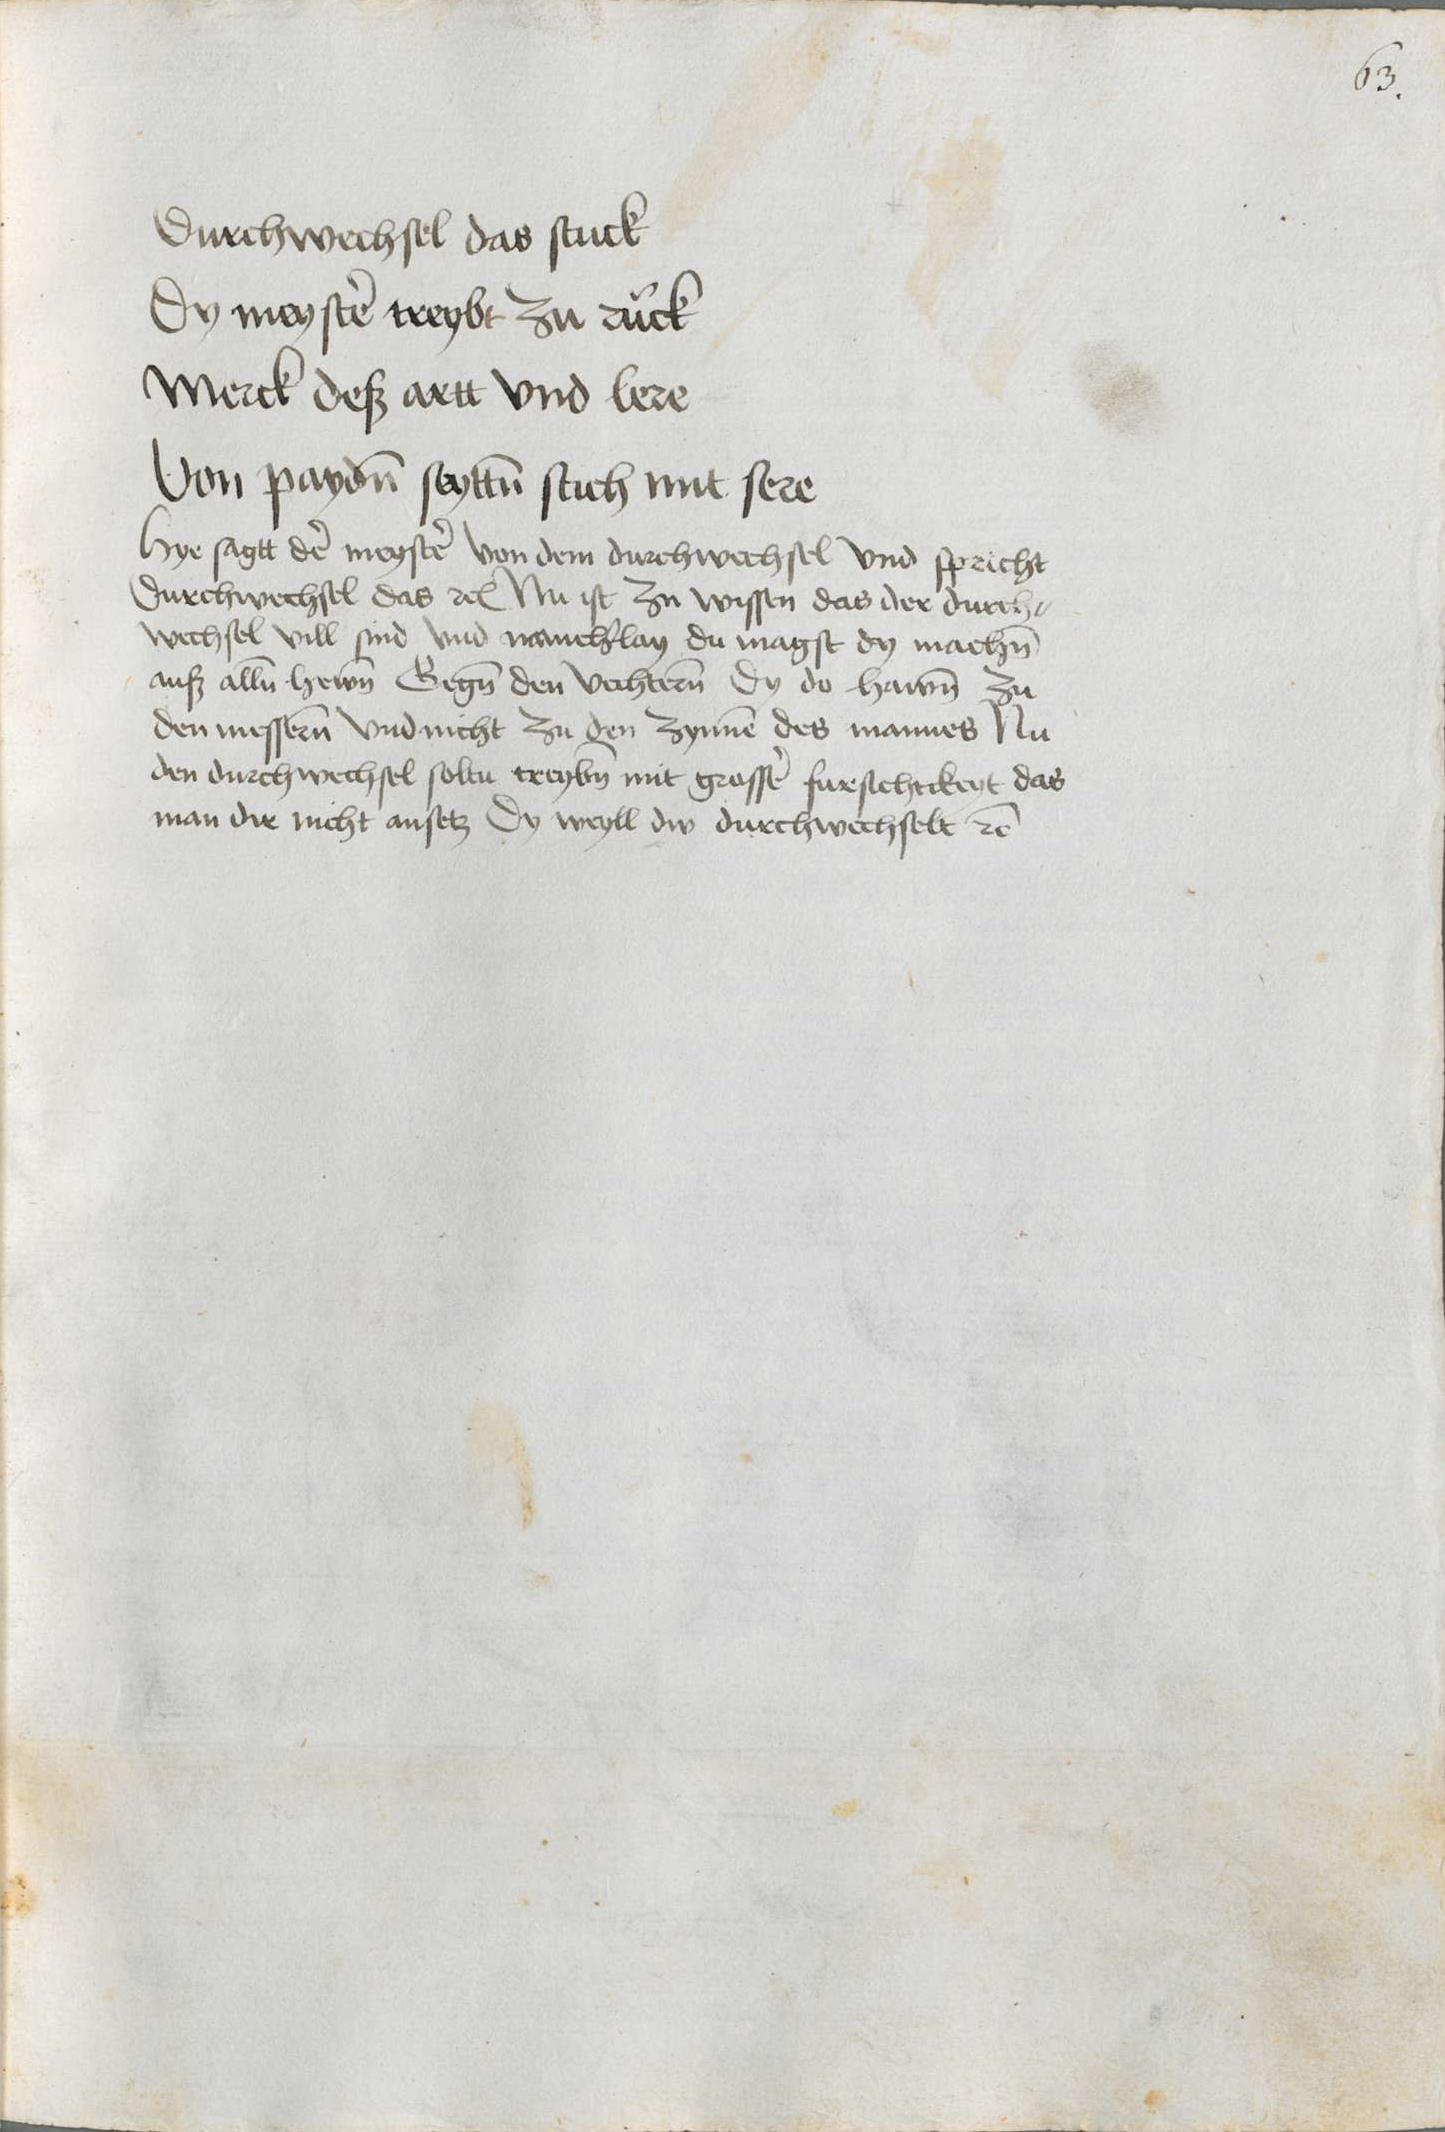 63.
Durchwechsel das stuck
Dy meystẽ treybt zu růck
Merck deß artt vnd lere
Von paydñ seyttñ stich mit sere
Hye sagtt dẽ meystẽ von dem durchwechsel vnd spricht
durchwechsel das ⁊c Nu ist zu wissen das der durch-
wechsel vill sind vnd manchlay du magst dy machñ
auß allñ hewñ Gegñ den vechterñ Dy do hawñ zu
den messerñ vnd nicht zu den zynnẽ des mannes Nu
den durchwechsel soltu treybñ mit grossẽ fursichtikeyt das
man dir nicht ansetz Dy weyll dw durchwechselt ⁊c̃